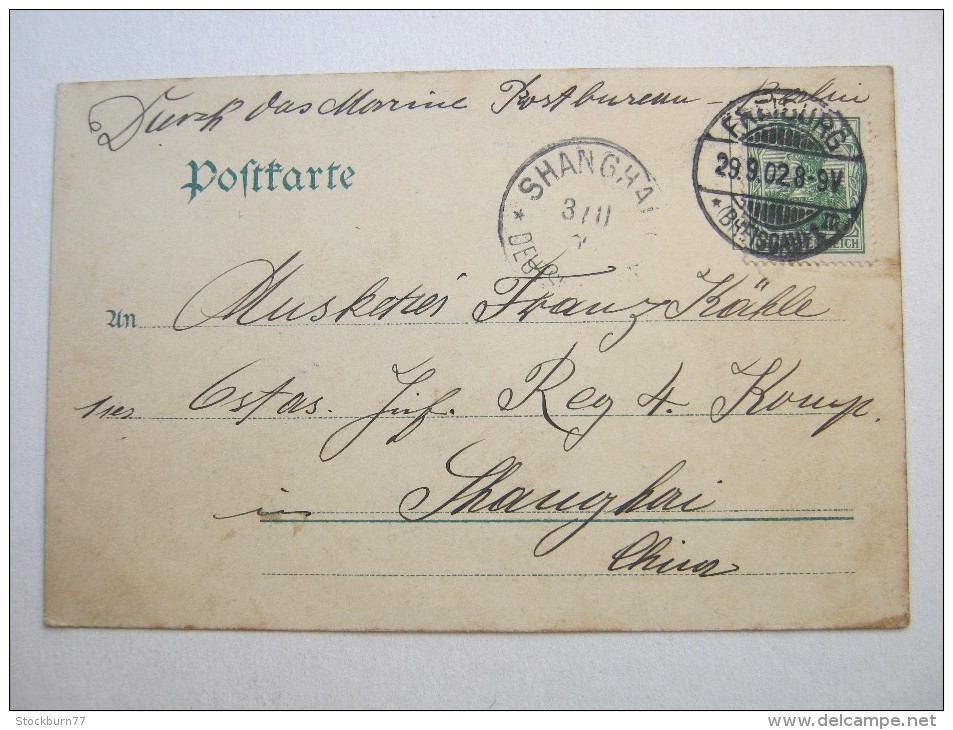 Durch das Marine Postbureau - Berlin
FREIBURG
29.9.02.8-9V
* (BREISGAU) 1 *
REICH
Postkarte
SHANGHAI
3/11
* DEUTS
An Musketier Franz Kähle
1tes Ostas. Inf. Reg 4. Komp.
in Shanghai
China
Stockburn77
delcampe.net